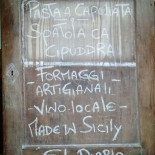 PASTA A CAPULIATA
SCATOLA CA
CIPUDDRA
FORMAGGI
ARTIGIANALI
- VINO LOCALE -
MADE IN SICILY